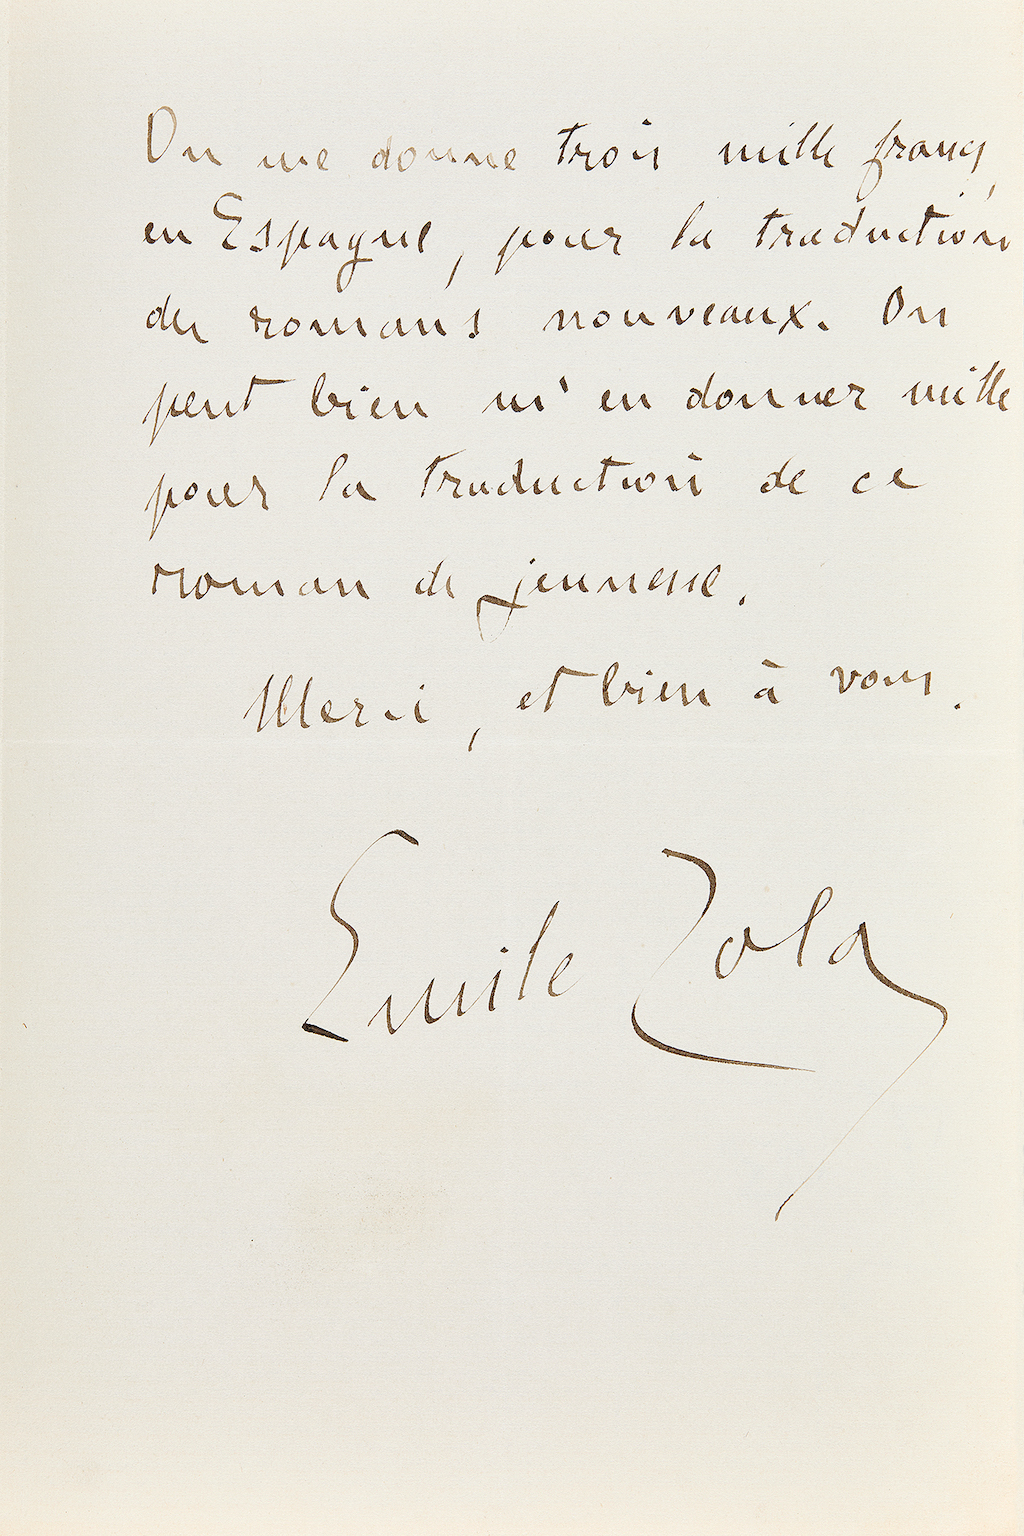 On me donne trois mille francs,
en Espagne, pour la traduction
des romans nouveaux. On
peut bien m'en donner mille
pour la traduction de ce
roman de jeunesse.
Merci, et bien à vous.
Emile Zola